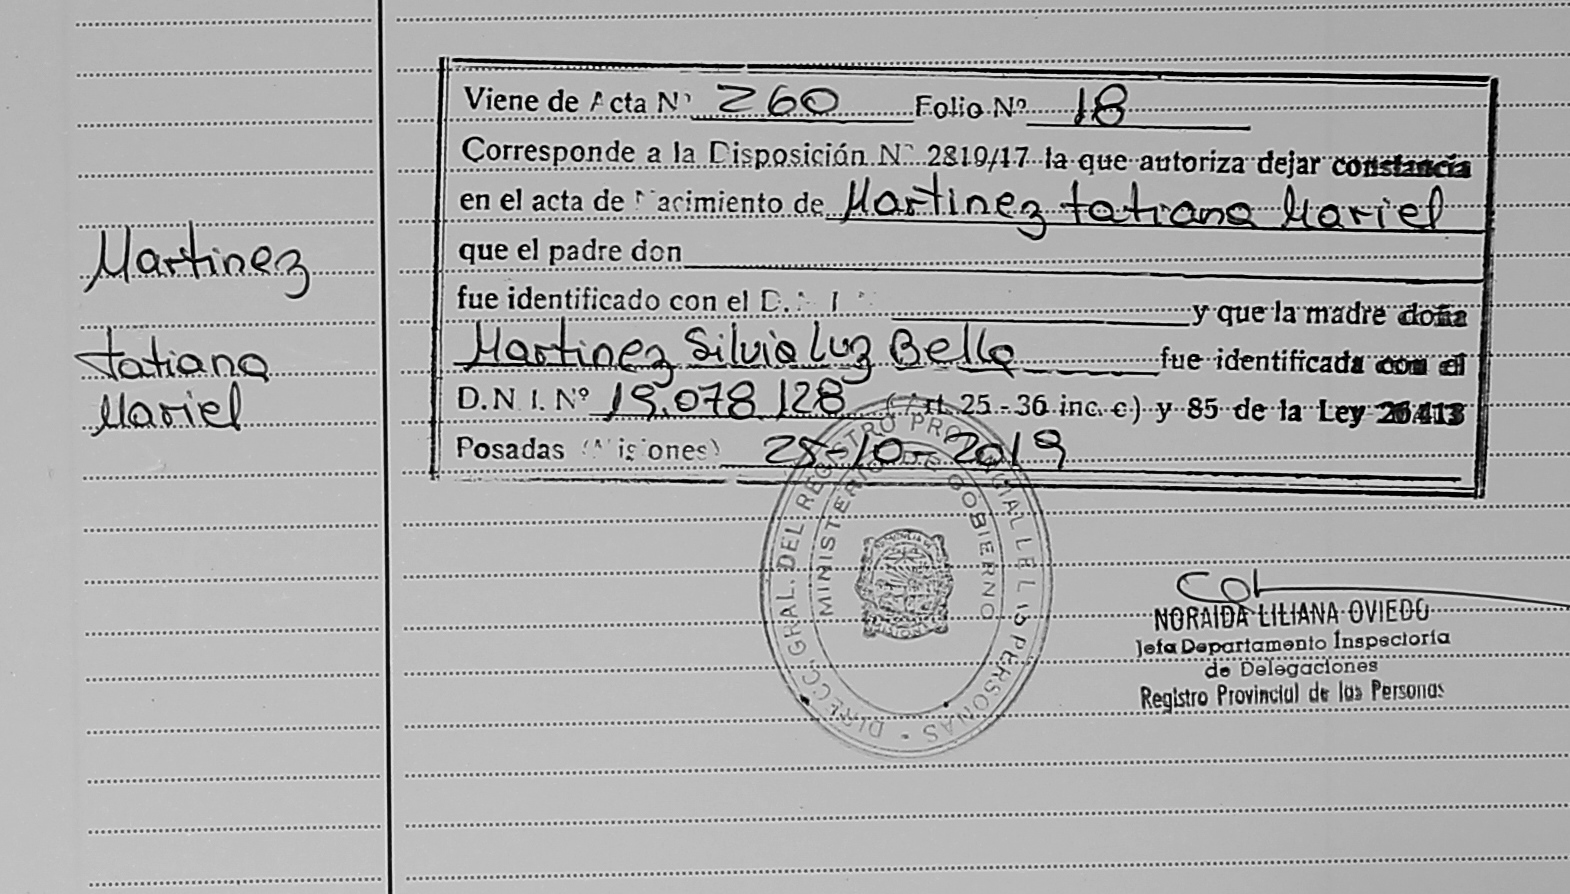 Martinez
tatiana
Mariel
Viene de Acta Nº 260 Folio Nº 18
Corresponde a la Disposición Nº 2819/17 la que autoriza dejar constancia
en el acta de Nacimiento de Martinez tatiana Mariel
que el padre don
fue identificado con el D.N.I. Nº y que la madre doña
Martinez Silvia Luz Bella fue identificada con el
D.N.I. Nº 19.078.128 (Art. 25 - 36 inc. c) y 85 de la Ley 26413
Posadas (Misiones) 25-10-2019
DIRECC. GRAL. DEL REGISTRO PROVINCIAL DE LAS PERSONAS
MINISTERIO DE GOBIERNO
NORAIDA LILIANA OVIEDO
Jefa Departamento Inspectoría
de Delegaciones
Registro Provincial de las Personas